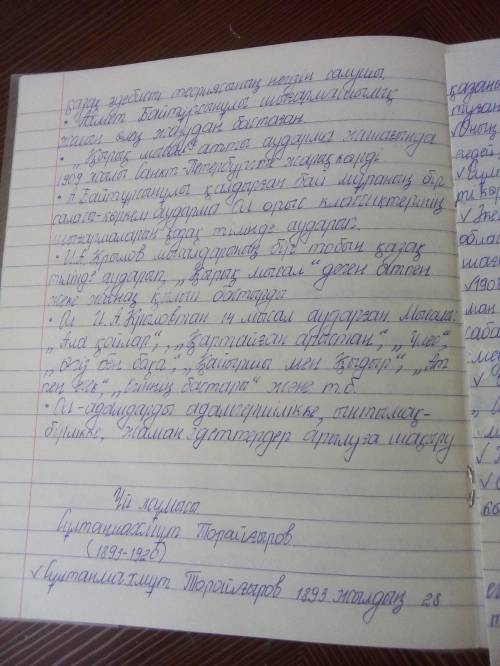 қазақ әдебиеті теориясының негізін салушы.
• Ахмет Байтұрсынұлы шығармашылық
жолын өлең жазудан бастаған.
• „Қырық мысал" атты аударма жинағында
1909 жылы Санкт-Петербургте жарық көрді.
• А. Байтұрсынұлы қалдырған бай мұраның бір
саласы-көркем аударма. Ол орыс классиктерінің
шығармаларын қазақ тілінде аударып.
• И.А. Крылов мысалдарының бір тобын қазақ
тілінде аударып, „Қырық мысал" деген атпен
жеке жинақ қылып бастырды.
• Ол И.А. Крыловтан 14 мысал аударған. Мысалы:
„Ала қойлар", „Қартайған арыстан", „Үлес",
„Өгіз бен бақа", „Қайыршы мен Қыдыр", „Ат
пен есек", „Егіннің бастары" және т.б.
• Ол-адамдарды адамгершілікке, ынтымақ-
бірлікке, жаман әдеттерден арылуға шақыру
Үй жұмысы
Сұлтанмахмұт Торайғыров
(1893-1920)
✓ Сұлтанмахмұт Торайғыров 1893 жылдың 28